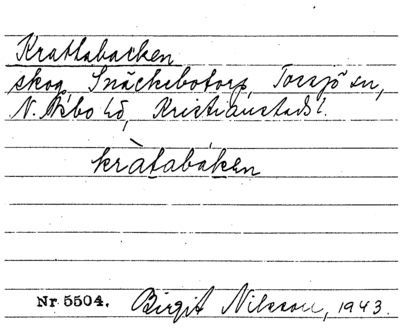 Krattabacken
skog, Snäckebotorp, Torsjö sn,
N. Åsbo hd, Kristianstads l.
kràtabáken
Nr 5504. Birgit Nilsson, 1943.